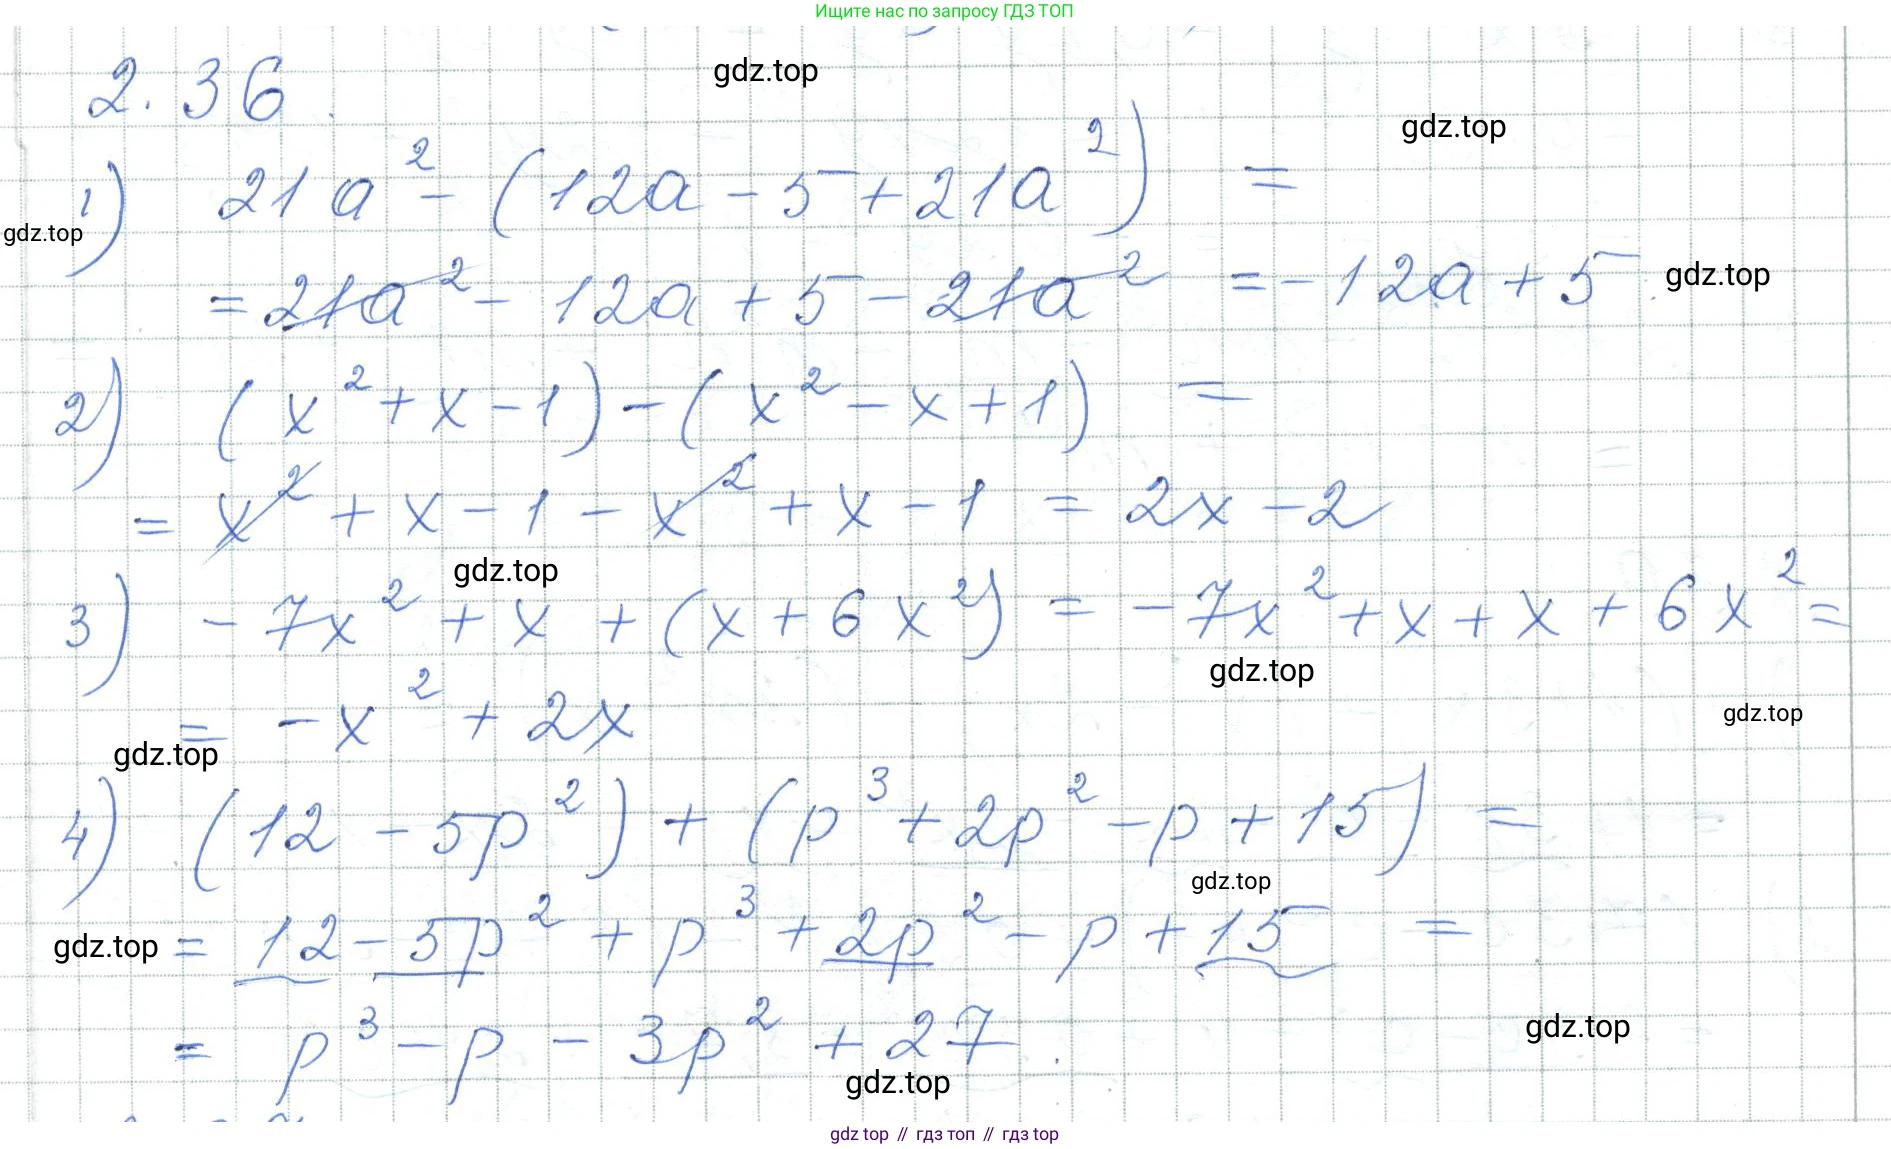 Ищите нас по запросу ГДЗ ТОП
2.36.
gdz.top
gdz.top
1) 21a² - (12a - 5 + 21a²) =
gdz.top
= 21a² - 12a + 5 - 21a² = -12a + 5
gdz.top
2) (x² + x - 1) - (x² - x + 1) =
= x² + x - 1 - x² + x - 1 = 2x - 2
gdz.top
3) -7x² + x + (x + 6x²) = -7x² + x + x + 6x² =
gdz.top
= -x² + 2x
gdz.top
gdz.top
4) (12 - 5p²) + (p³ + 2p² - p + 15) =
gdz.top
= 12 - 5p² + p³ + 2p² - p + 15 =
gdz.top
= p³ - p - 3p² + 27.
gdz.top
gdz.top
gdz top // гдз топ // гдз top